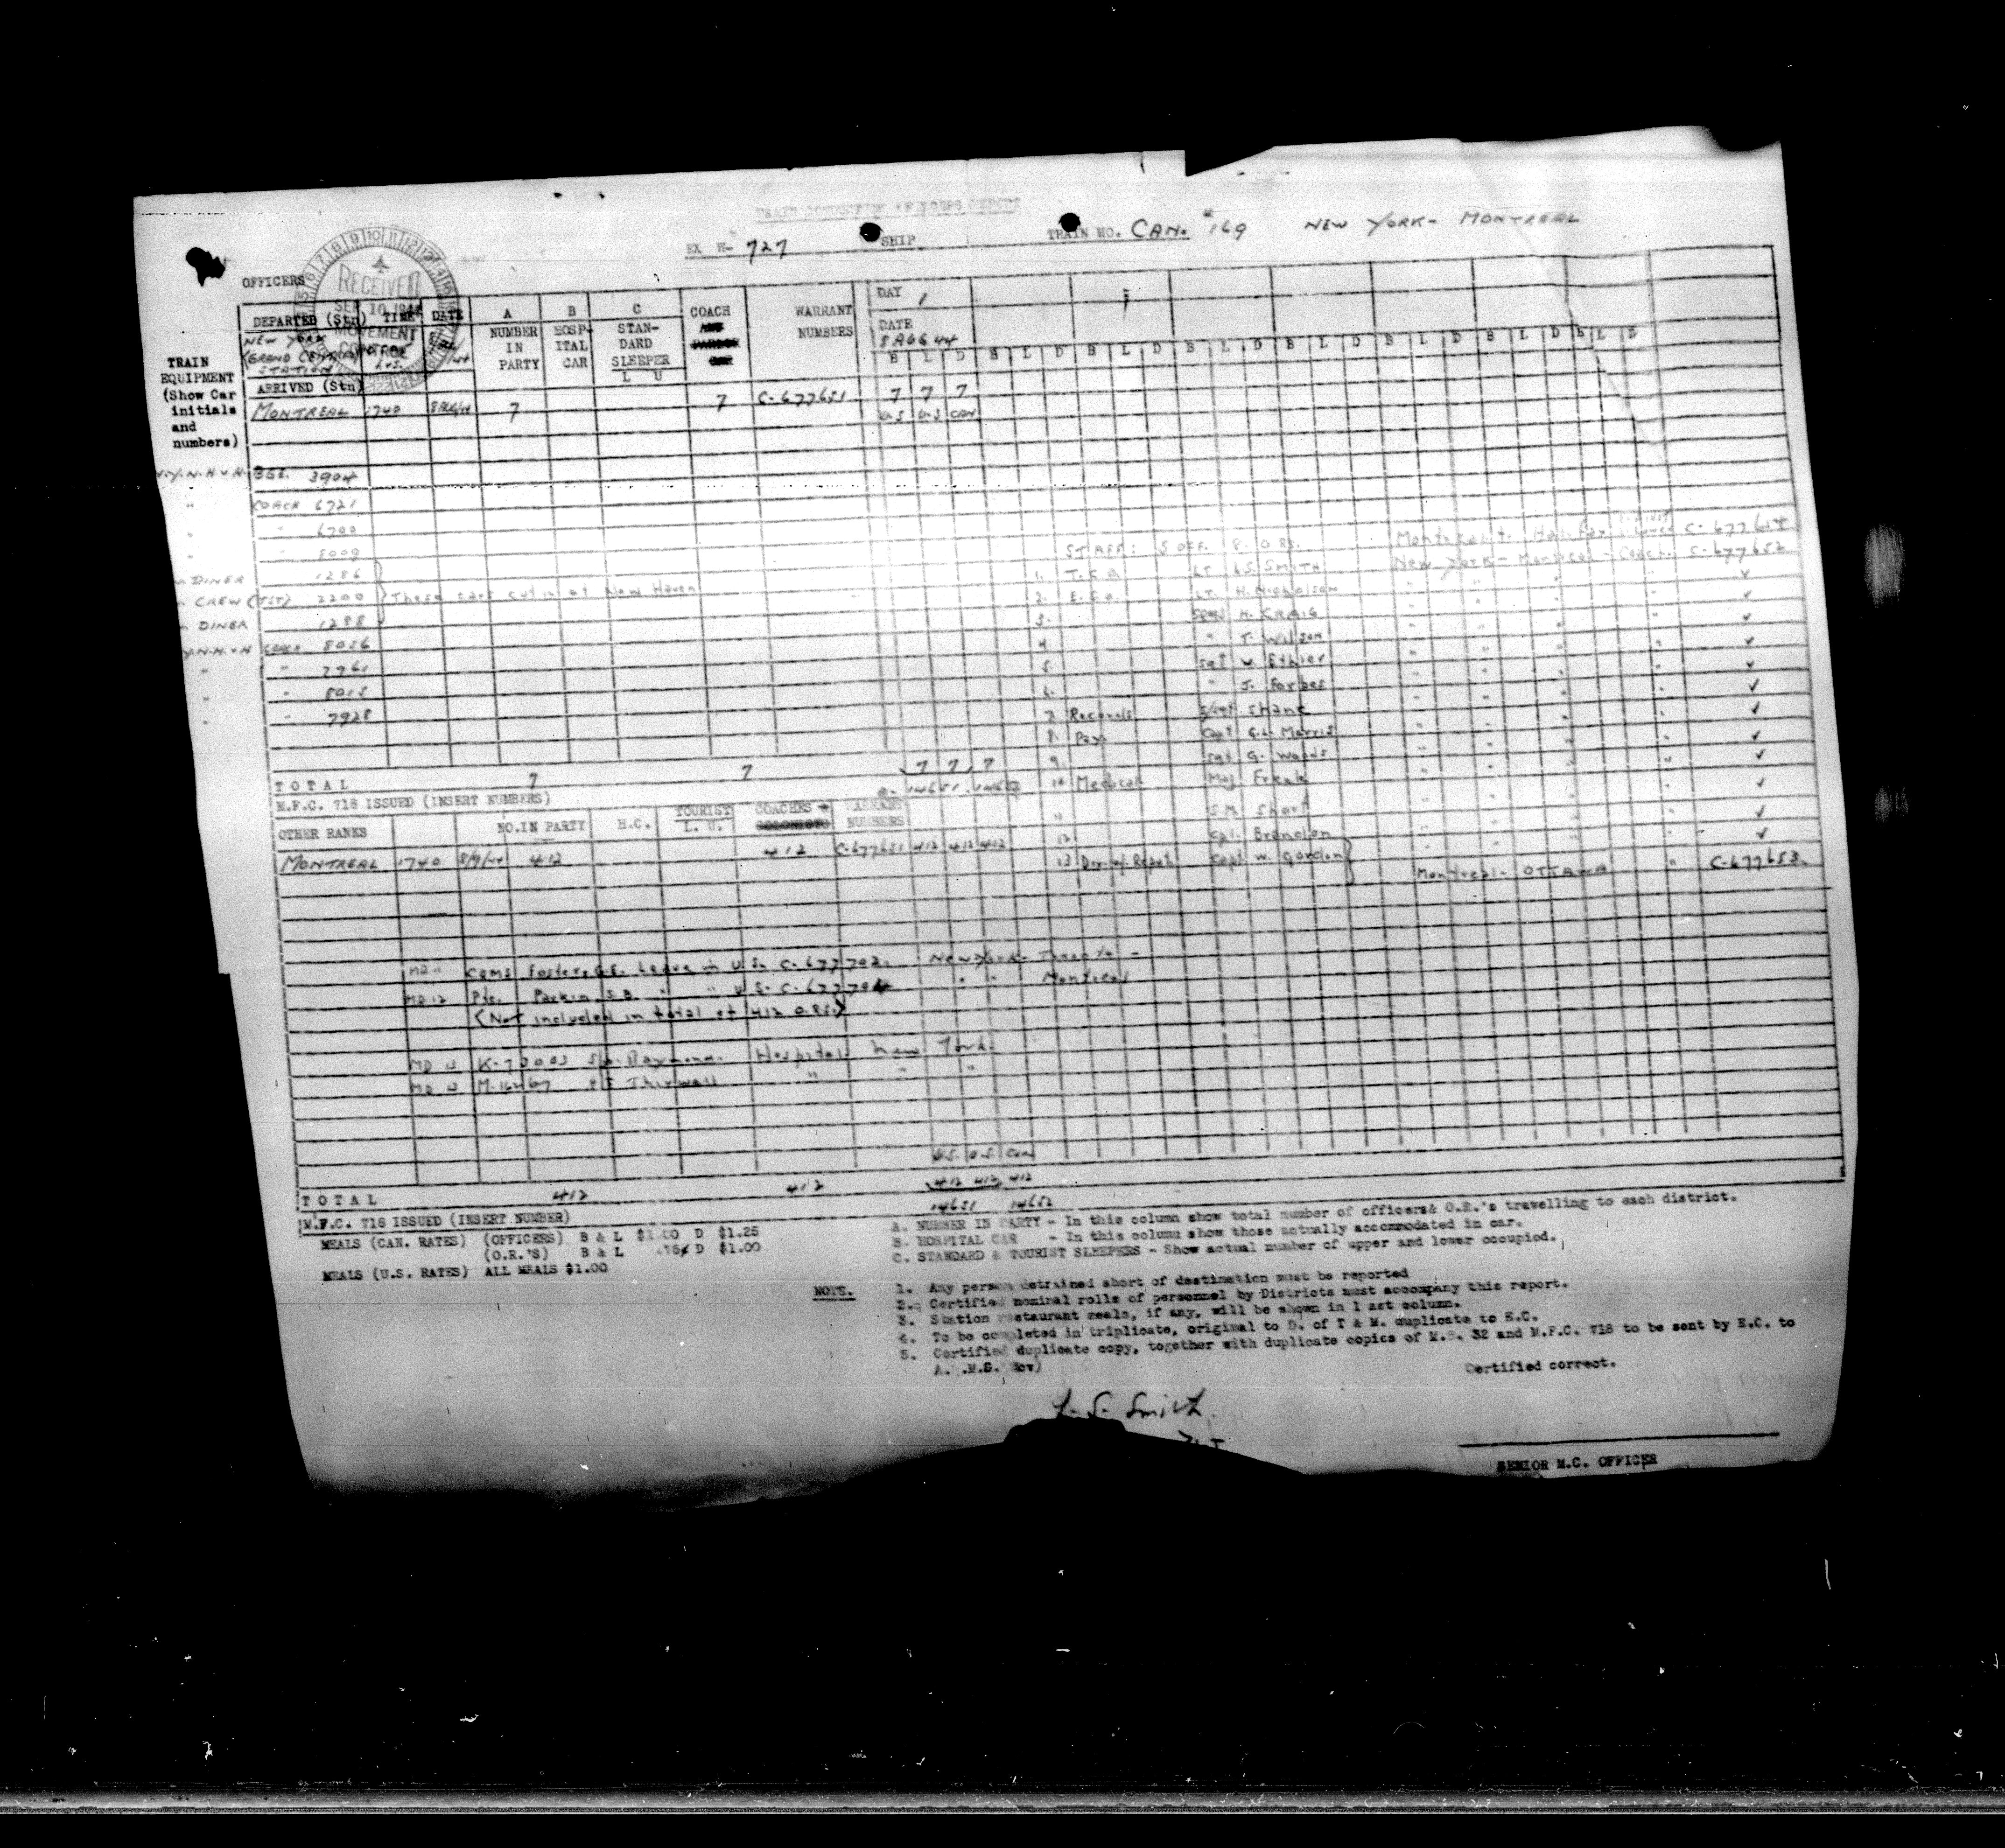 TRAIN CONDUCTING OFFICERS REPORT
EX W- 727 SHIP TRAIN NO. CAN. #169 NEW YORK - MONTREAL
OFFICERS
RECEIVED
SEP 10 1944
MOVEMENT
CONTROL
TRAIN
EQUIPMENT
(Show Car
initials
and
numbers)
DEPARTED (Stn) TIME DATE
NEW YORK
(GRAND CENTRAL
STATION) hrs.
ARRIVED (Stn)
A
NUMBER
IN
PARTY
B
HOSP-
ITAL
CAR
C
STAN-
DARD
SLEEPER
L U
COACH
WARRANT
NUMBERS
DAY 1
DATE
8 AUG 44
B L D B L D B L D B L D B L D B L D B L D B L D
MONTREAL 1740 8 AUG/44 7 7 C-677651 7 7 7
U.S U.S CAN
N.Y.N.H & H BGE. 3904
" COACH 6721
" " 6700
" " 8009
" DINER 1286
" CREW (TST) 2200 } These cars cut in at New Haven
" DINER 1288
N.Y.N.H & H COACH 8056
" " 7961
" " 8015
" " 7928
STAFF: 5 OFF. 8 ORs. Montreal to Halifax Lower C-677654
1. T.C.O. LT. L.S. SMITH New York - Montreal - Coach. C-677652
2. E.C.O. LT. H. Nicholson " " " " ✓
3. H. CRAIG " " " " ✓
4. " T. Wilson " " " " ✓
5. Sgt W. Ethier " " " " ✓
6. " J. Forbes " " " " ✓
7. Records S/Sgt Shane " " " " ✓
8. Pay Capt G.L. Morris " " " " ✓
9. Sgt G. Woods " " " " ✓
10 Medical Maj Freak " " " " ✓
11 S.M. Sharp " " " " ✓
12 Cpl. Brandon " " " " ✓
13 Dir. of Repat. Capt W. Gordon
Montreal - OTTAWA " C-677653
TOTAL 7 7 7 7 7
M.F.C. 718 ISSUED (INSERT NUMBERS) 14651 14652
OTHER RANKS NO.IN PARTY H.C. TOURIST L. U. COACHES WARRANT NUMBERS
MONTREAL 1740 8/9/44 412 412 C-677651 412 412 412
MD CQMS Foster, G.E. Leave in U.S. C-677702. New York - Toronto -
MD 12 Pte. Parkin, S.B. " " U.S. C-677704 " " Montreal
(Not included in total of 412 O.Rs.)
MD K-73003 Raymond. Hospital New York.
MD Thirwall " " "
U.S. U.S. CAN
412 412 412
TOTAL 412 412 14651 14652
M.F.C. 718 ISSUED (INSERT NUMBER)
MEALS (CAN. RATES) (OFFICERS) B & L $1.00 D $1.25
(O.R.'S) B & L .75¢ D $1.00
MEALS (U.S. RATES) ALL MEALS $1.00
A. NUMBER IN PARTY - In this column show total number of officers& O.R.'s travelling to each district.
B. HOSPITAL CAR - In this column show those actually accommodated in car.
C. STANDARD & TOURIST SLEEPERS - Show actual number of upper and lower occupied.
NOTE.
1. Any person detrained short of destination must be reported
2. Certified nominal rolls of personnel by Districts must accompany this report.
3. Station restaurant meals, if any, will be shown in last column.
4. To be completed in triplicate, original to D. of T & M. duplicate to E.C.
5. Certified duplicate copy, together with duplicate copies of M.B. 32 and M.F.C. 718 to be sent by E.C. to
A. .M.G. Mov)
Certified correct.
L. S. Smith
SENIOR M.C. OFFICER